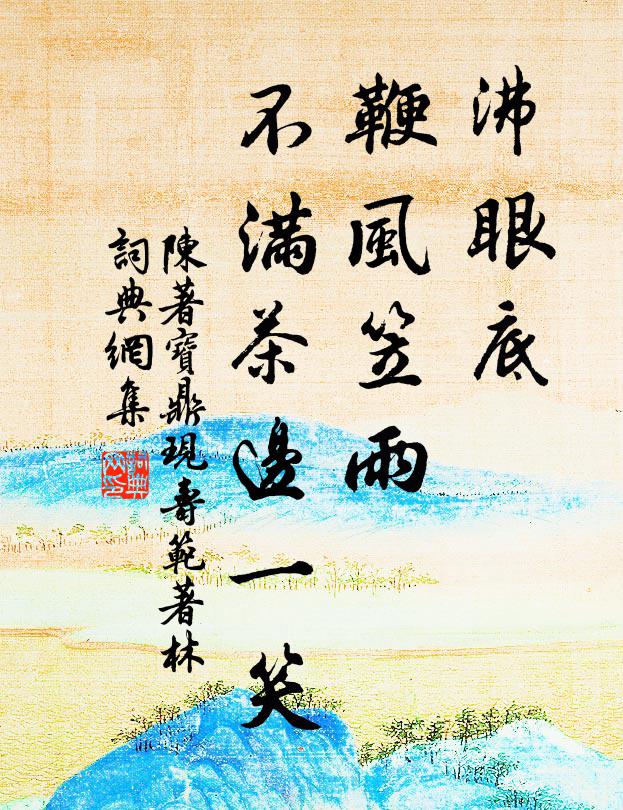 沸眼底
鞭風笠雨
不滿茶邊一笑
陳著寶鼎現壽範著林
詞典網集